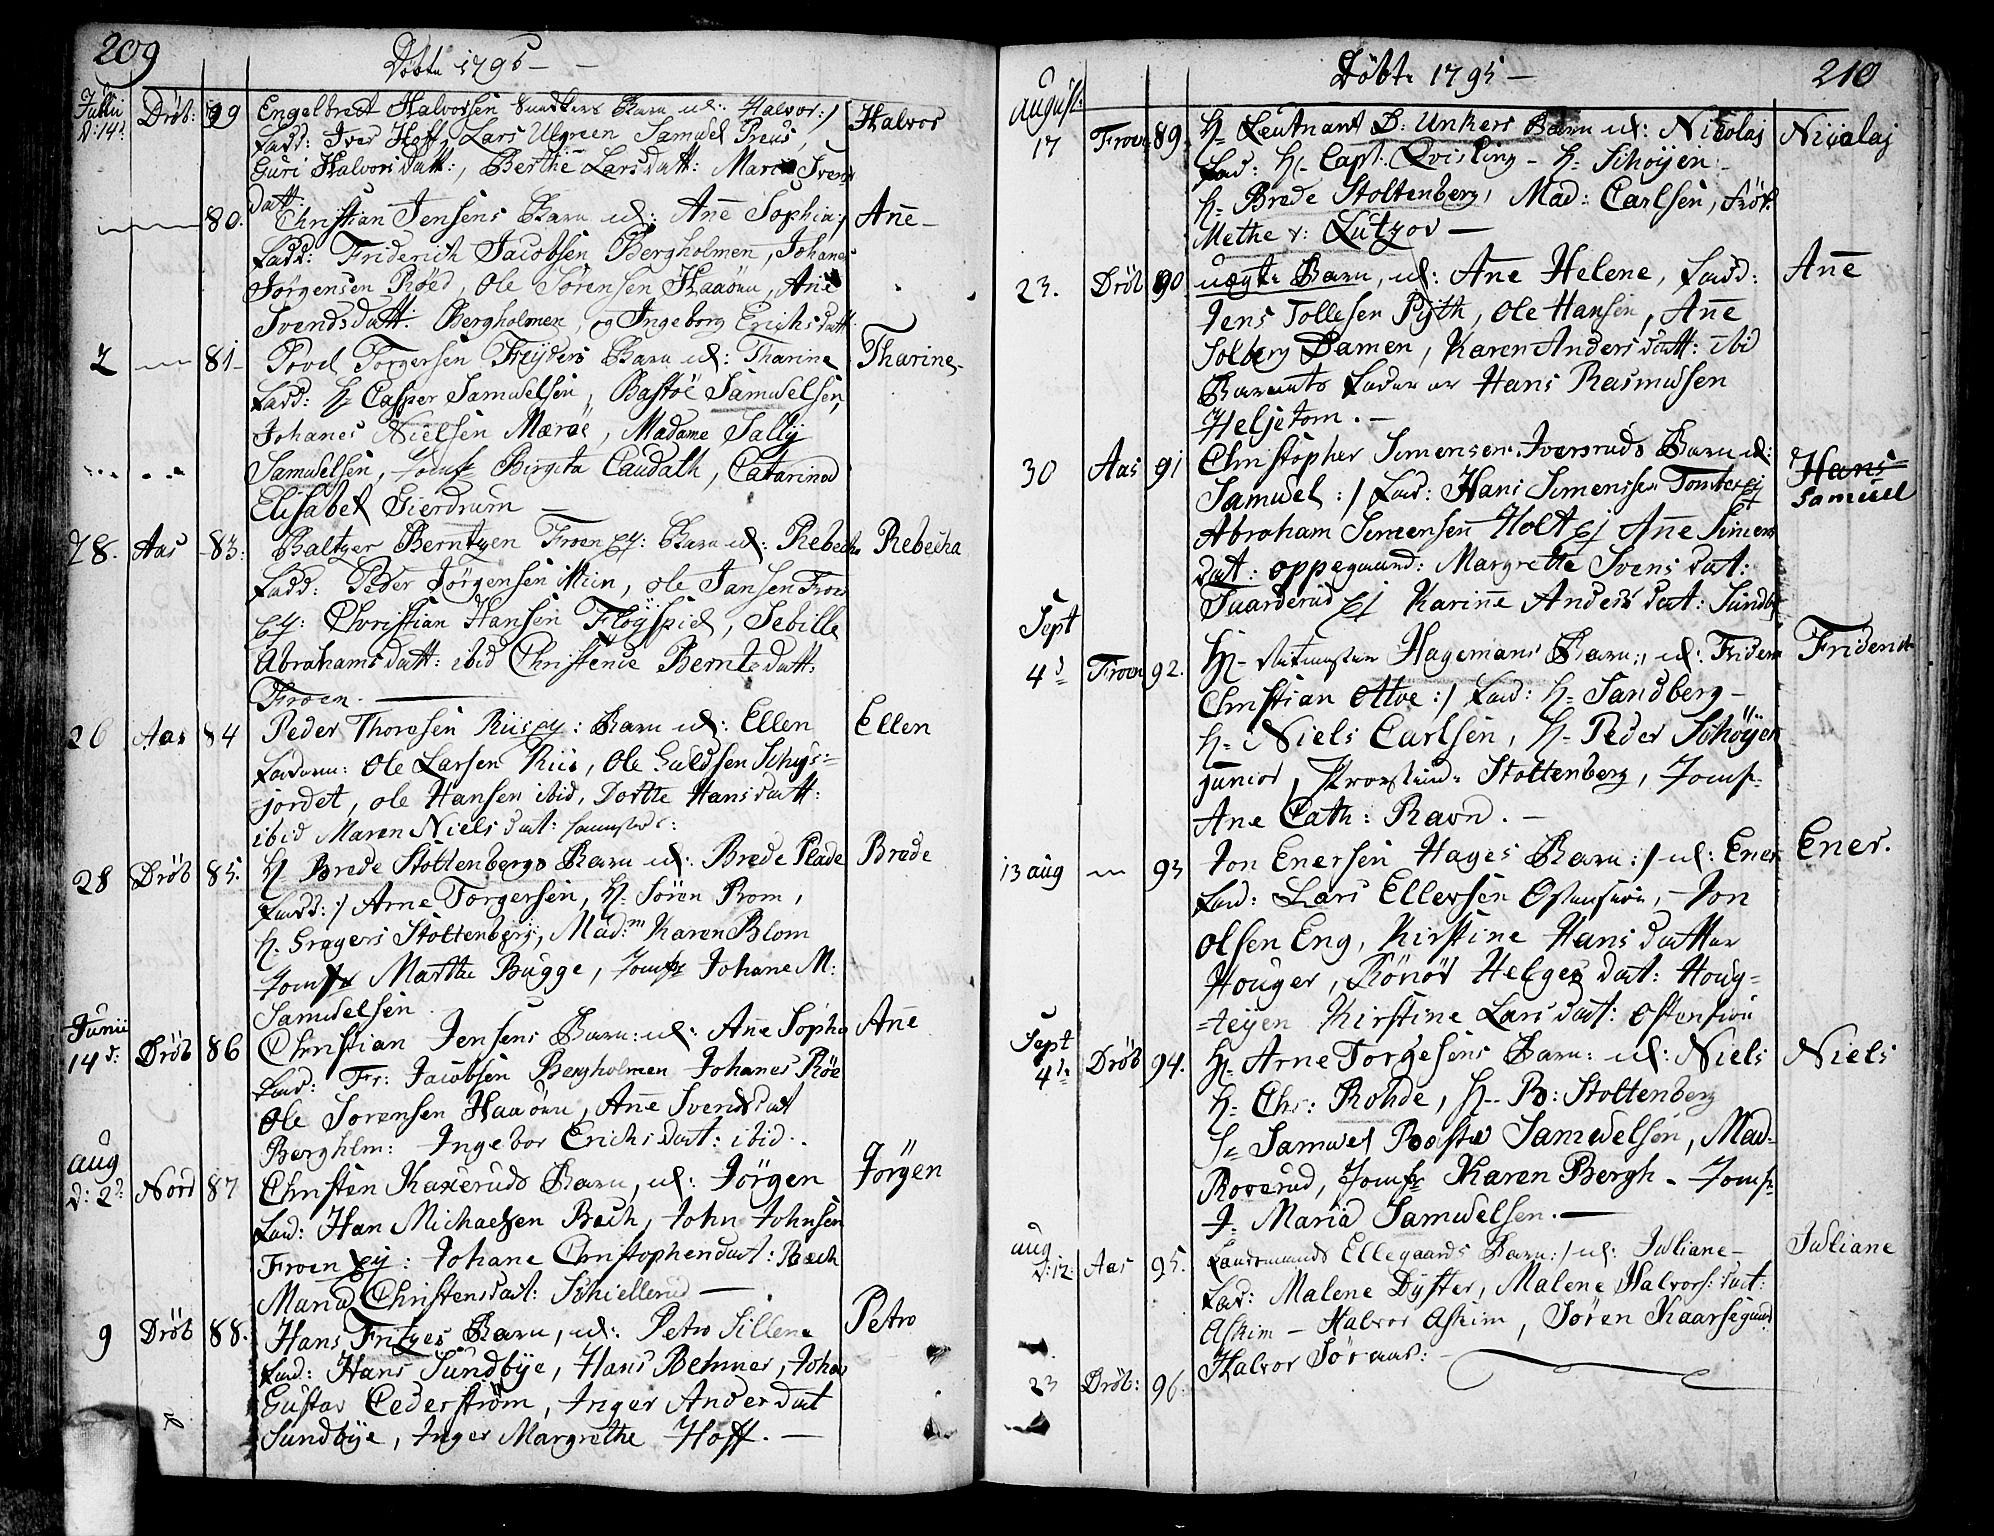 209
Döbte 1795 —
Julii d: 14d Dröb: 79 Engelbret Halvorsen Barn n: Halvor :/ Halvor
Fadd: Iver Hoff, Lars Ulgreen Samuel Preus,
Guri Halvors datt:, Berthe Lars datt: Maria Svens
datt:
80. Christian Jensens Barn n: Anne Sophia :/ Anne
Fadd: Friderich Jacobsen Bergholmen, Johanes
Jörgensen Röed, Ole Sörensen Haaöen, Ane
Svendsdatt: Bergholmen, og Ingeborg Erichsdatt:
2 81 Povel Torgersen Barn n: Tharine Tharine
Fadd: H Casper Samuelsen, Bastöe Samuelsen,
Johanes Nielsen Mæröe, Madame Sally
Samuelsen, Jomfr Birgita Caudath, Catarina
Elisabet Gierdrum
28. Aas 83: Baltzer Berntzen Froen Ej: Barn n: Rebecha Rebecha
Fadd: Peder Jörgensen, Ole Jansen Froen
Ej: Christian Hansen Flögspiel, Sebille
Abrahamsdatt: ibid Christence Berntsdatt:
Froen.
26 Aas 84 Peder Thoresen Riis Ej: Barn n: Ellen Ellen
Faderne: Ole Larsen Riis, Ole Guldsen Schys-
jordet, Ole Hansen ibid, Dorthe Hansdatt:
ibid Maren Niels dat:
28 Dröb 85. H Brede Stoltenbergs Barn n: Brede Plade Brede
Fadd: / Arne Torgersen, H. Sören Brom,
H. Gregers Stoltenberg, Mad:m Karen Blom
Jomfr Marthe Bugge, Jomfr Johane M:
Samuelsen
Junii 14d: Dröb 86 Christian Jensens Barn: n: Anne Sophia Anne
Fad: Fr: Jacobsen Bergholmen Johanes Röe
Ole Sorensen Haaöen, Ane Svendsdat
Berghlm: Ingebor Erichsdat: ibid.
aug d: 2d Nord 87 Christen Karerude Barn, n: Jörgen Jörgen
Fad: Han Michaelsen Bech, John Johnsen
Froen Ej: Johane Christophersdat: Bech
Maria Christensdat: Schiellerud —
9 Dröb 88. Hans Fritzes Barn, n: Petro Sillene Petro
Fad: Hans Sundbÿe, Hans Behmer, Johan
Gustav Cederström, Inger Anderdat
Sundbÿe, Inger Margrethe Hoff. —
Döbte 1795 —
210
august: 17 Froen 89. H Leutnant B: Unkers Barn n: Nicolaj Nicolaj
Fad: H. Capt: Qvisling — H. Schöyen
H. Brede Stoltenberg, Mad: Carlsen, Frök:
Methe v: Lützov —
23. Dröb 90 uægte Barn, n: Anne Helene, Fadd: Anne
Jens Tollesen Pyth, Ole Hansen, Anne
Solberg Damen, Karen Andersdatt: ibid
Barnets Fader er Hans Rasmusen
Heljetom. —
30 Aas 91 Christopher Simensen Iversruds Barn n: Hans
Samuel :/ Fad: Hans Simensen Tomter Ej Samuel
Abraham Simensen Holt Ej Anne Simens
dat: oppegaard: Margrethe Svens dat:
Taarderud Ej Karine Anders dat: Sundby
Sept 4d Froen 92. H. Ritmester Hagemans Barn:, n: Friderich Friderich
Christian Ottoe :/ Fad: H. Sandberg —
H. Niels Carlsen, H. Peder Schöyen
junior, Stoltenberg, Jomfr.
Ane Cath: Ravn. —
13 aug 93 Jon Enersen Hages Barn :/ n: Ener Ener.
Fad: Lars Ellevsen Ostension, Jon
Olsen Eng, Kirstine Hans datter
Houger, Rönöv Helges dat: Houg-
-teÿen Kirstine Lars dat: Ostension
Sept 4de Dröb 94. H. Arne Torgesens Barn: n: Niels Niels
H. Chr: Rohde, H. B: Stoltenberg
H. Samuel Bastøe Samuelsen, Mad.
Roverud, Jomfr Karen Bergh. Jomfr.
J. Maria Samuelsen. —
aug d: 12 Aas 95. Ellegaards Barn :/ n: Juliane — Juliane
Fad: Malene Dyster, Malene Halvors: dat:
Askim — Halvor Askim, Sören Kaarsegaard
Halvor Söraas: —
23 Dröb: 96.